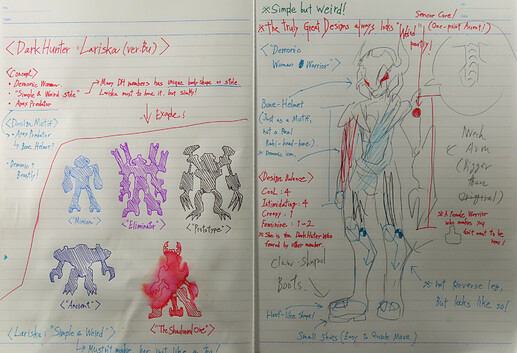 <Dark Hunter : Lariska (ver.Bu)>
<Concept>
• Demonic Woman.
• "Simple & Weird style"
• Apex Predator
→ Many DH members has unique body-shape or style.
Lariska must to have it, but Subtly!
Example :
<Design Motif>
• Apex Predator
↳ Bone Helmet!
• Demonic
Beastly!
<"Minion">
<"Eliminator">
<"Prototype">
<"Ancient">
<"The Shadowed One">
<Lariska: "Simple & Weird">
↳ Mustn't make her just like a
※Simple but Weird!
※ the Truly Great Designs always looks "Weird" partly!
(One-point Accent!)
Sensor Core!
<"Demonic
Woman Warrior">
Bone-Helmet
(Just as a Motif,
not a Real
Rahi-head-bone.)
※ Demonic icon.
<Design Balance>
Cool : 4
Intimidating : 4
Creepy : 1
Feminine : 1~2
※ She is the Dark Hunter Who
feared by other member.
Claw-Shaped
Boots
Hoof-like Shape!
Small Shoes (Easy to Quick Move)
Arm
(Bigger
than
Original)
※A Female Warrior
who makes say
don't want to be
here!
※ Not Reverse leg,
But looks like so!